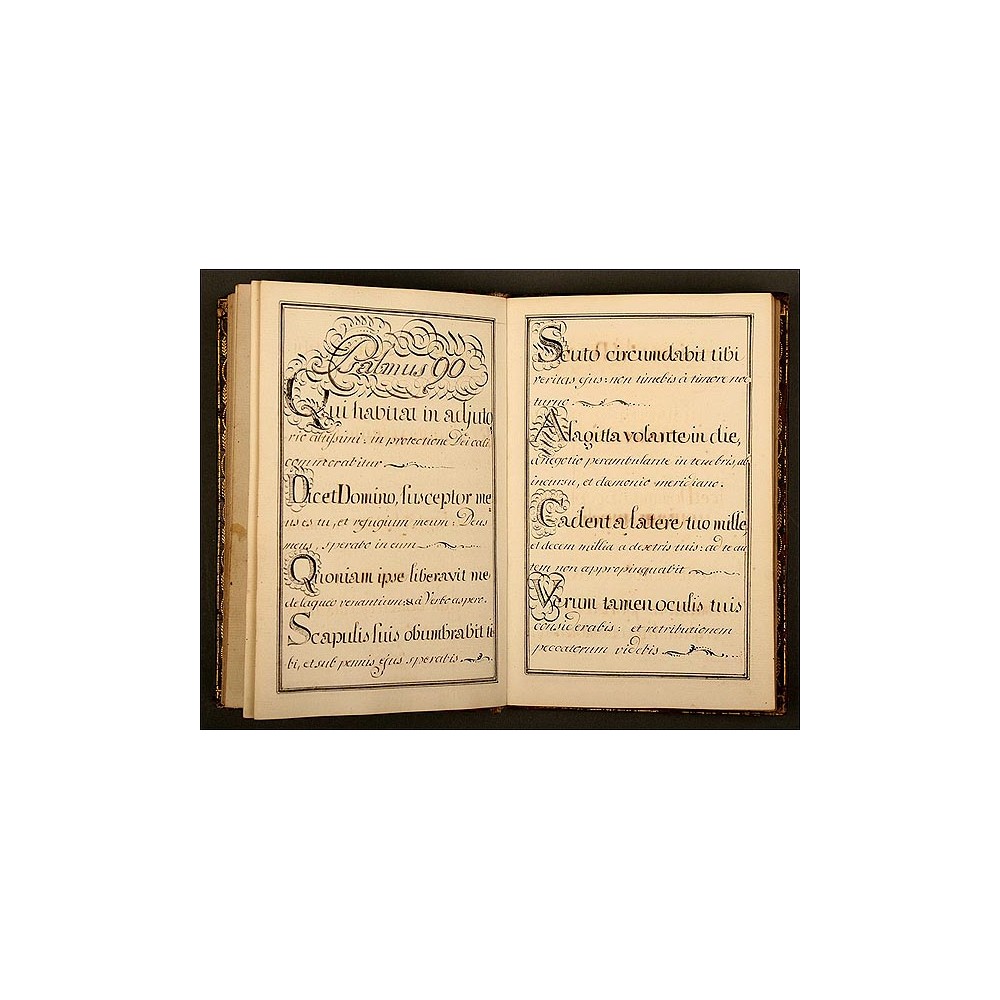 Psalmus 90
Qui habitat in adjuto,
rio altissimi: in protectione Dei cœli
commorabitur
Dicet Domino, susceptor me
us es tu, et refugium meum: Deus
meus, sperabo in eum
Quoniam ipse liberavit me
de laqueo venantium: & à Verbo aspero.
Scapulis suis obumbrabit ti
bi, et sub pennis ejus sperabis
Scuto circumdabit tibi
veritas ejus: non timebis à timore noc
turno
A sagitta volante in die,
a negotio perambulante in tenebris, ab
incursu, et dæmonio meridiano.
Cadent a latere tuo mille,
et decem millia a dextris tuis: ad te au
tem non appropinquabit
Verum tamen oculis tuis
considerabis: et retributionem
peccatorum videbis